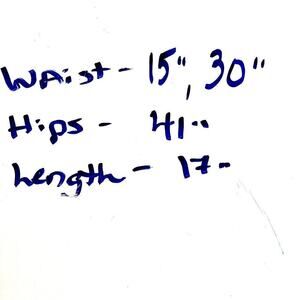 Waist - 15", 30"
Hips - 41"
Length - 17"